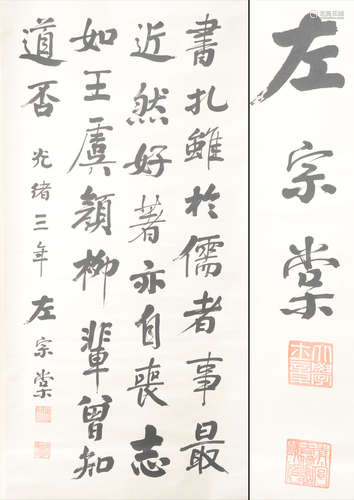 書扎雖於儒者事最
近然好著亦自喪志
如王虞顏柳輩曾知
道否 光緒三年 左宗棠
左宗棠
大學士章